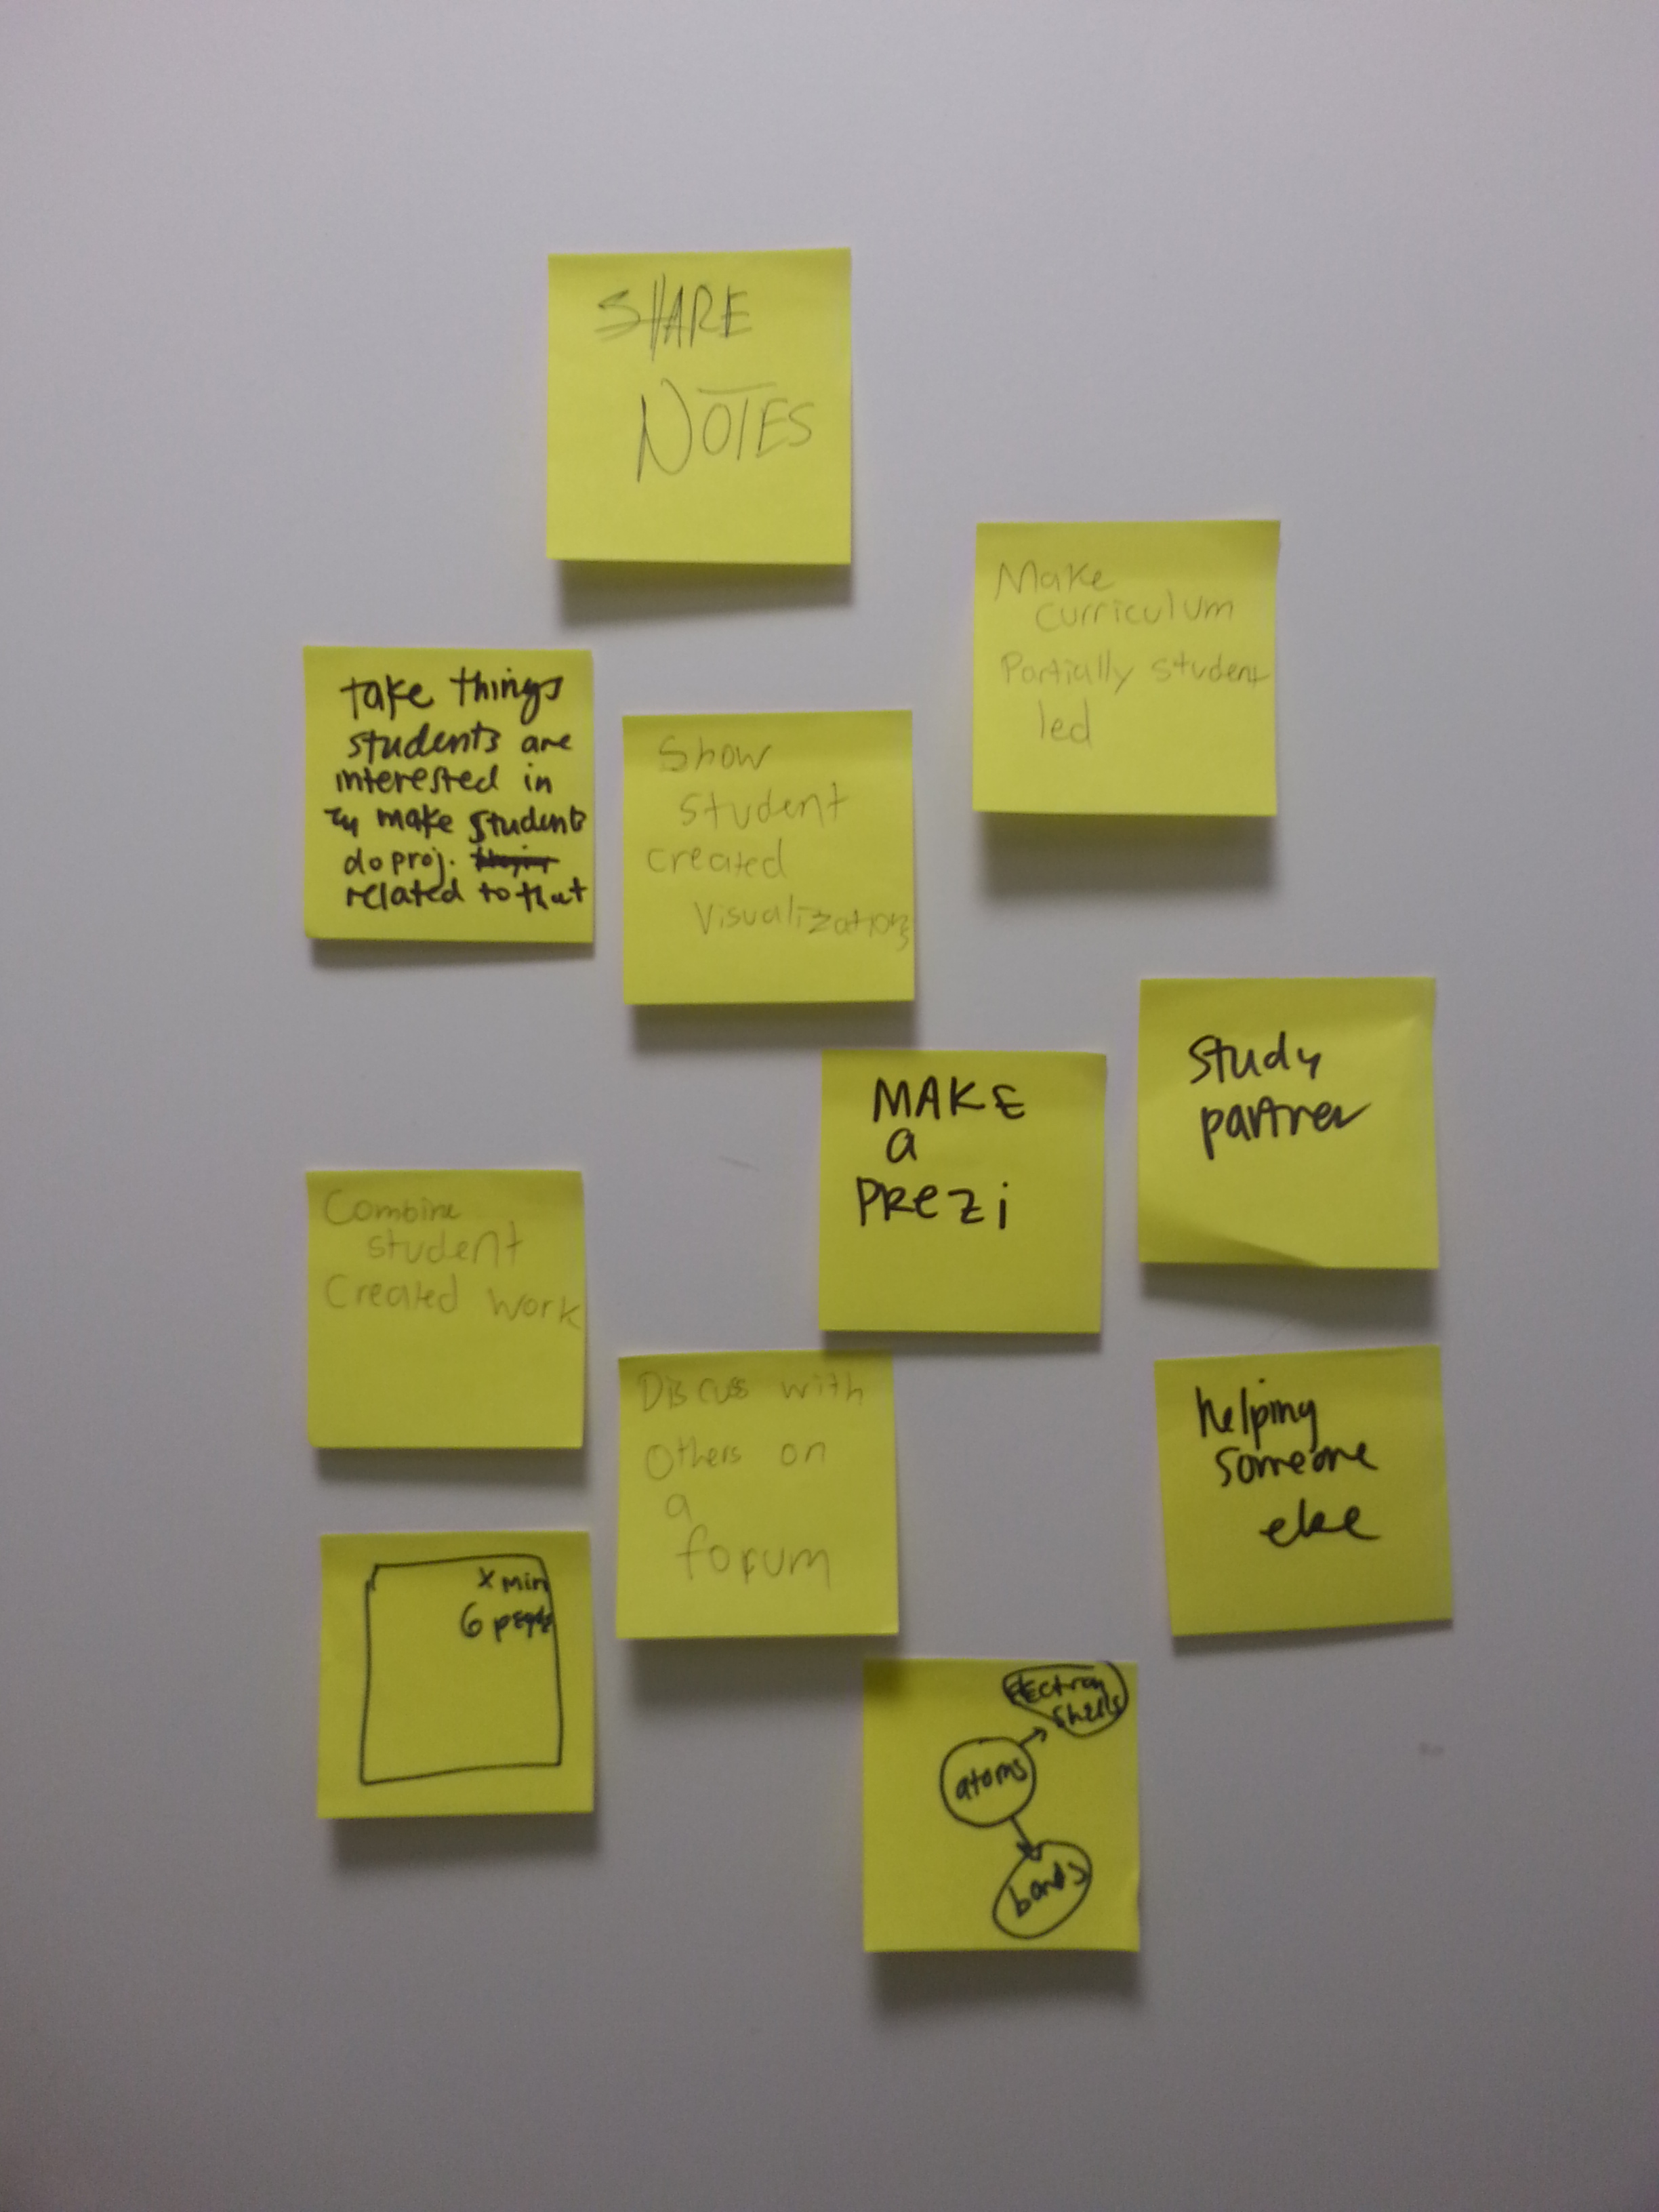 SHARE
NOTES
Make
curriculum
Partially student
led
take things
students are
interested in
make students
do proj.
related to that
Show
student
created
Visualizations
Study
partner
MAKE
a
PREZi
Combine
student
Created work
Discuss with
others on
a
forum
helping
someone
else
x min
6 people
Electron
shells
atoms
bonds